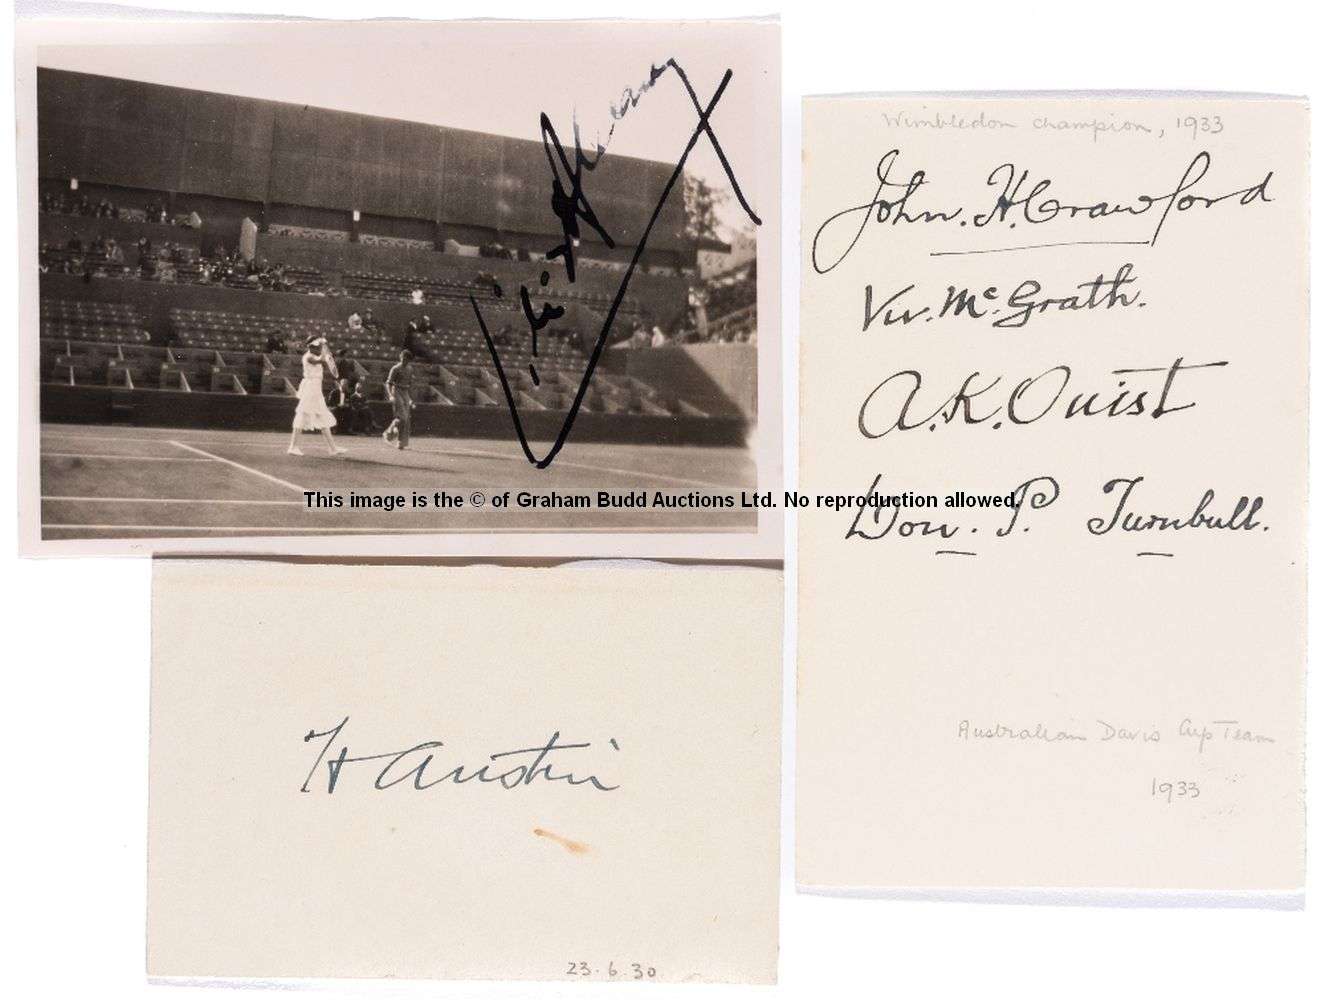 Wimbledon champion, 1933
John. H. Crawford
Viv. McGrath.
A. K. Quist
Don. P. Turnbull.
This image is the © of Graham Budd Auctions Ltd. No reproduction allowed.
Australian Davis Cup Team
1933
H Austin
23.6.30